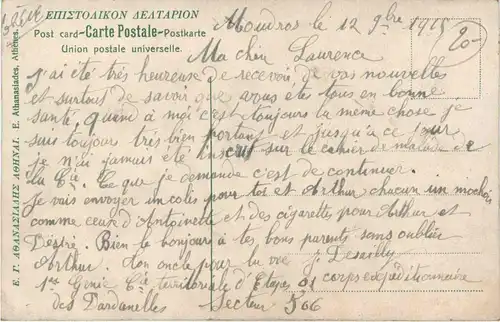 ΕΠΙΣΤΟΛΙΚΟΝ ΔΕΛΤΑΡΙΟΝ
Post card-Carte Postale-Postkarte
Union postale universelle.
Ε. Γ. ΑΘΑΝΑΣΙΑΔΗΣ ΑΘΗΝΑΙ. E. Athanasiades. Athènes.
20-
Moudros le 12 9bre 1915
Ma chère Laurence
J'ai été très heureuse de recevoir de vos nouvelles
et surtout de savoir que vous été tous en bonne
santé, quand à moi c'est toujours la même chose je
suis toujour très bien portant et jusqu'à ce jour
je n'ai jamais été inscrit sur le cahier de malade de
la Cie. Ce que je demande c'est de continuer.
je vais envoyer un colis pour toi et Arthur chacun un mochoir
comme ceux d'Antoinette et des cigarettes pour Arthur et
Désiré. Bien le bonjour à tes bons parents sans oublier
Arthur. Ton oncle pour la vie J Desailly
Génie Cie territoriale d'Etapes 01 corps expéditionnaire
des Dardanelles Secteur 506